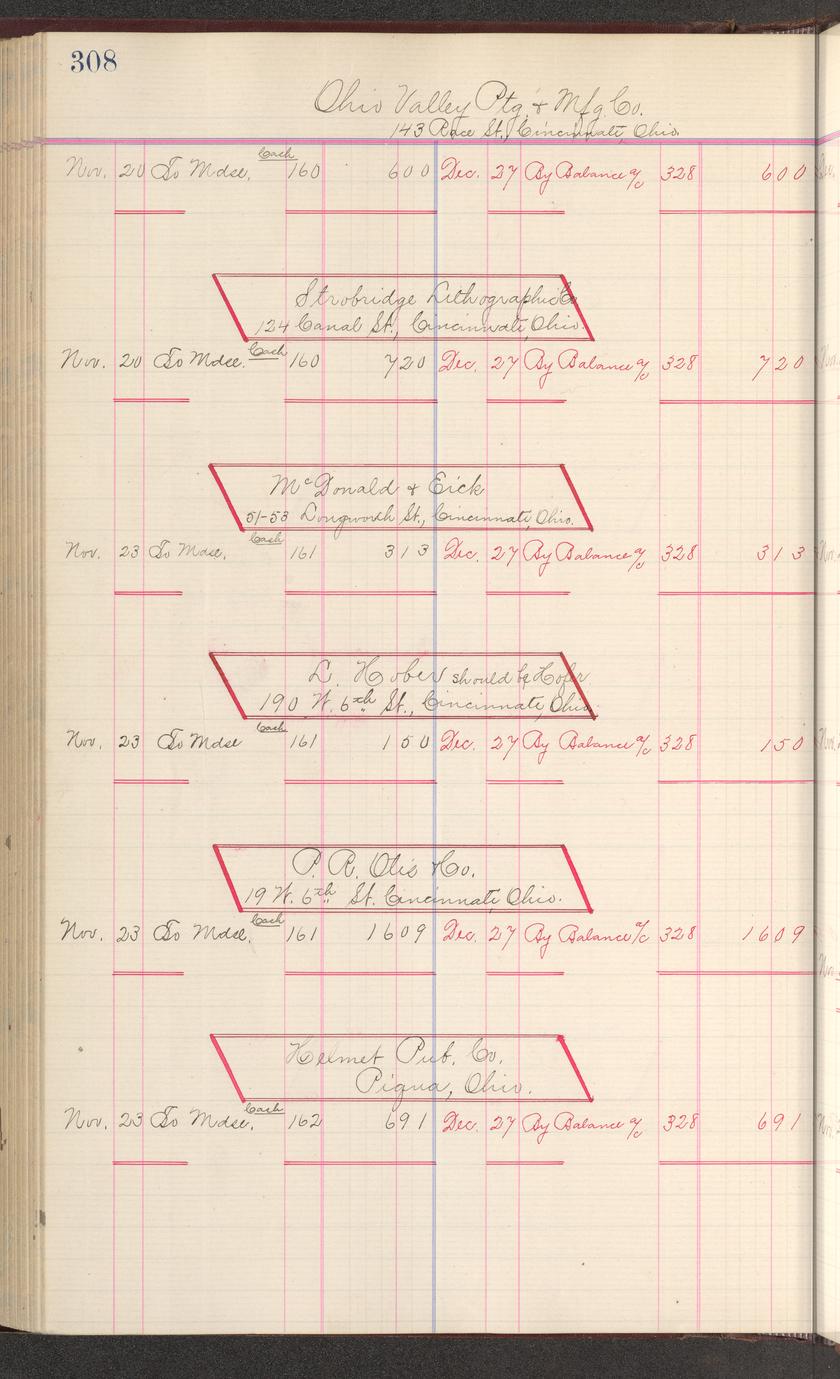 308
Ohio Valley Ptg. & Mfg. Co.
143 Race St., Cincinnati, Ohio
Nov. 20 To Mdse. Cash 160 600 Dec. 27 By Balance a/c 328 600
Strobridge Lithographic Co
124 Canal St., Cincinnati, Ohio.
Nov. 20 To Mdse. Cash 160 720 Dec. 27 By Balance a/c 328 720
McDonald & Eick
51-53 Longworth St., Cincinnati, Ohio.
Nov. 23 To Mdse, Cash 161 313 Dec. 27 By Balance a/c 328 313
L. Hober should be Hofer
190 W. 6th St., Cincinnati, Ohio.
Nov. 23 To Mdse Cash 161 150 Dec. 27 By Balance a/c 328 150
P. R. Otis & Co.
19 W. 6th St. Cincinnati, Ohio.
Nov. 23 To Mdse, Cash 161 1609 Dec. 27 By Balance a/c 328 1609
Helmet Pub. Co.
Piqua, Ohio.
Nov. 23 To Mdse, Cash 162 691 Dec. 27 By Balance a/c 328 691